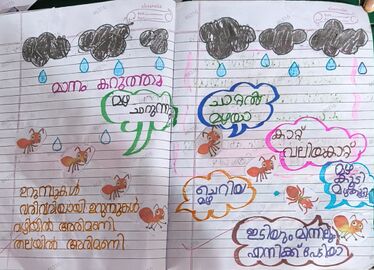 മാനം കറുത്തു
മഴ
ചാറുന്നു
ഉറുമ്പുകൾ
വരിവരിയായി ഉറുമ്പുകൾ
വഴിയിൽ അരിമണി
തലയിൽ അരിമണി
ചാറ്റൽ
മഴയാ
കാറ്റ്
വലിയകാറ്റ്
ചെറിയ
മഴ
മഴ
കൂടി
ഇടിയും മിന്നലും
എനിക്ക് പേടിയാ